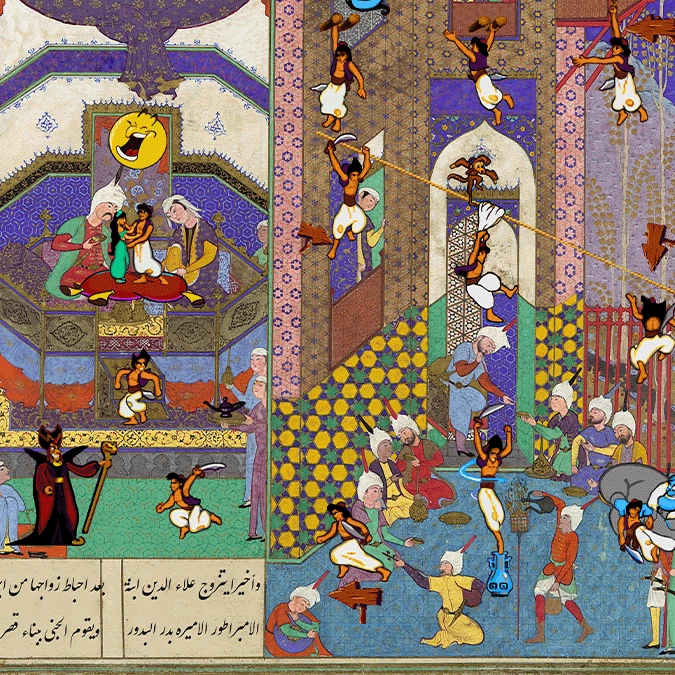 وأخيرا يتزوج علاء الدين ابنة
الامبراطور الاميره بدر البدور
بعد احباط زواجها من
ويقوم الجني ببناء قصر